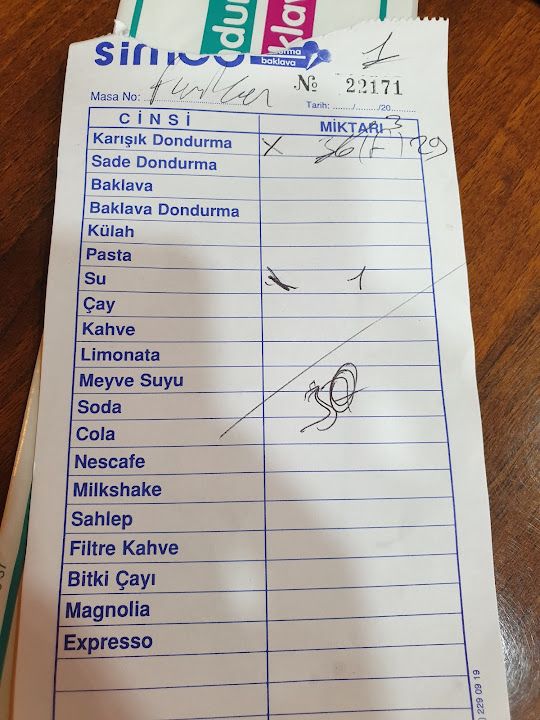 baklava
1
Nº 22171
Masa No:
Tarih: ......./......./20.......
CİNSİ MİKTARI
Karışık Dondurma x
Sade Dondurma
Baklava
Baklava Dondurma
Külah
Pasta
Su x 1
Çay
Kahve
Limonata
Meyve Suyu
Soda
Cola
Nescafe
Milkshake
Sahlep
Filtre Kahve
Bitki Çayı
Magnolia
Expresso
229 09 19